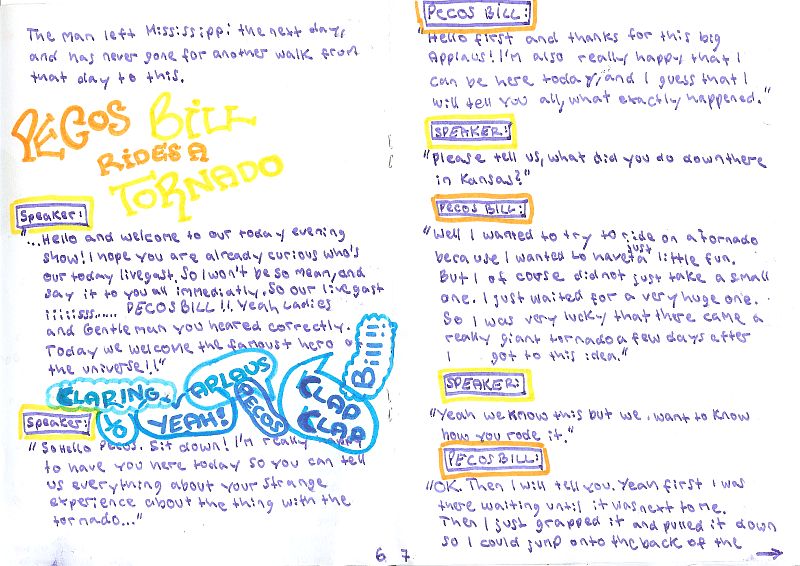 The man left Mississippi the next day,
and has never gone for another walk from
that day to this.
PECOS BILL
RIDES A
TORNADO
Speaker:
"...Hello and welcome to our today evening
show! I hope you are already curious who's
our today livegast. So I won't be so mean, and
say it to you all immediatly. So our livegast
iiiiiisss...... PECOS BILL!!. Yeah Ladies
and Gentleman you heared correctly.
Today we welcome the famoust hero of
the universe!!"
CLARING
YO
YEAH!
APLAUS
PECOS
CLAP
CLAP
Bill!!
Speaker:
"So Hello PECOS. Sit down! I'm really
to have you here today so you can tell
us everything about your strange
experience about the thing with the
tornado..."
6
PECOS BILL:
"Hello first and thanks for this big
Applaus! I'm also really happy that I
can be here today, and I guess that I
will tell you all, what exactly happened."
SPEAKER:
"please tell us, what did you do down there
in Kansas?"
PECOS BILL:
"Well I wanted to try to ride on a Tornado
because I wanted to have just a little fun.
But I of course did not just take a small
one. I just waited for a very huge one.
So I was very lucky that there came a
really giant tornado a few days after
I got to this idea."
SPEAKER:
"Yeah we know this but we want to know
how you rode it."
PECOS BILL:
"OK. Then I will tell you. Yeah first I was
there waiting until it was next to me.
Then I just grapped it and pulled it down
so I could jump onto the back of the
7